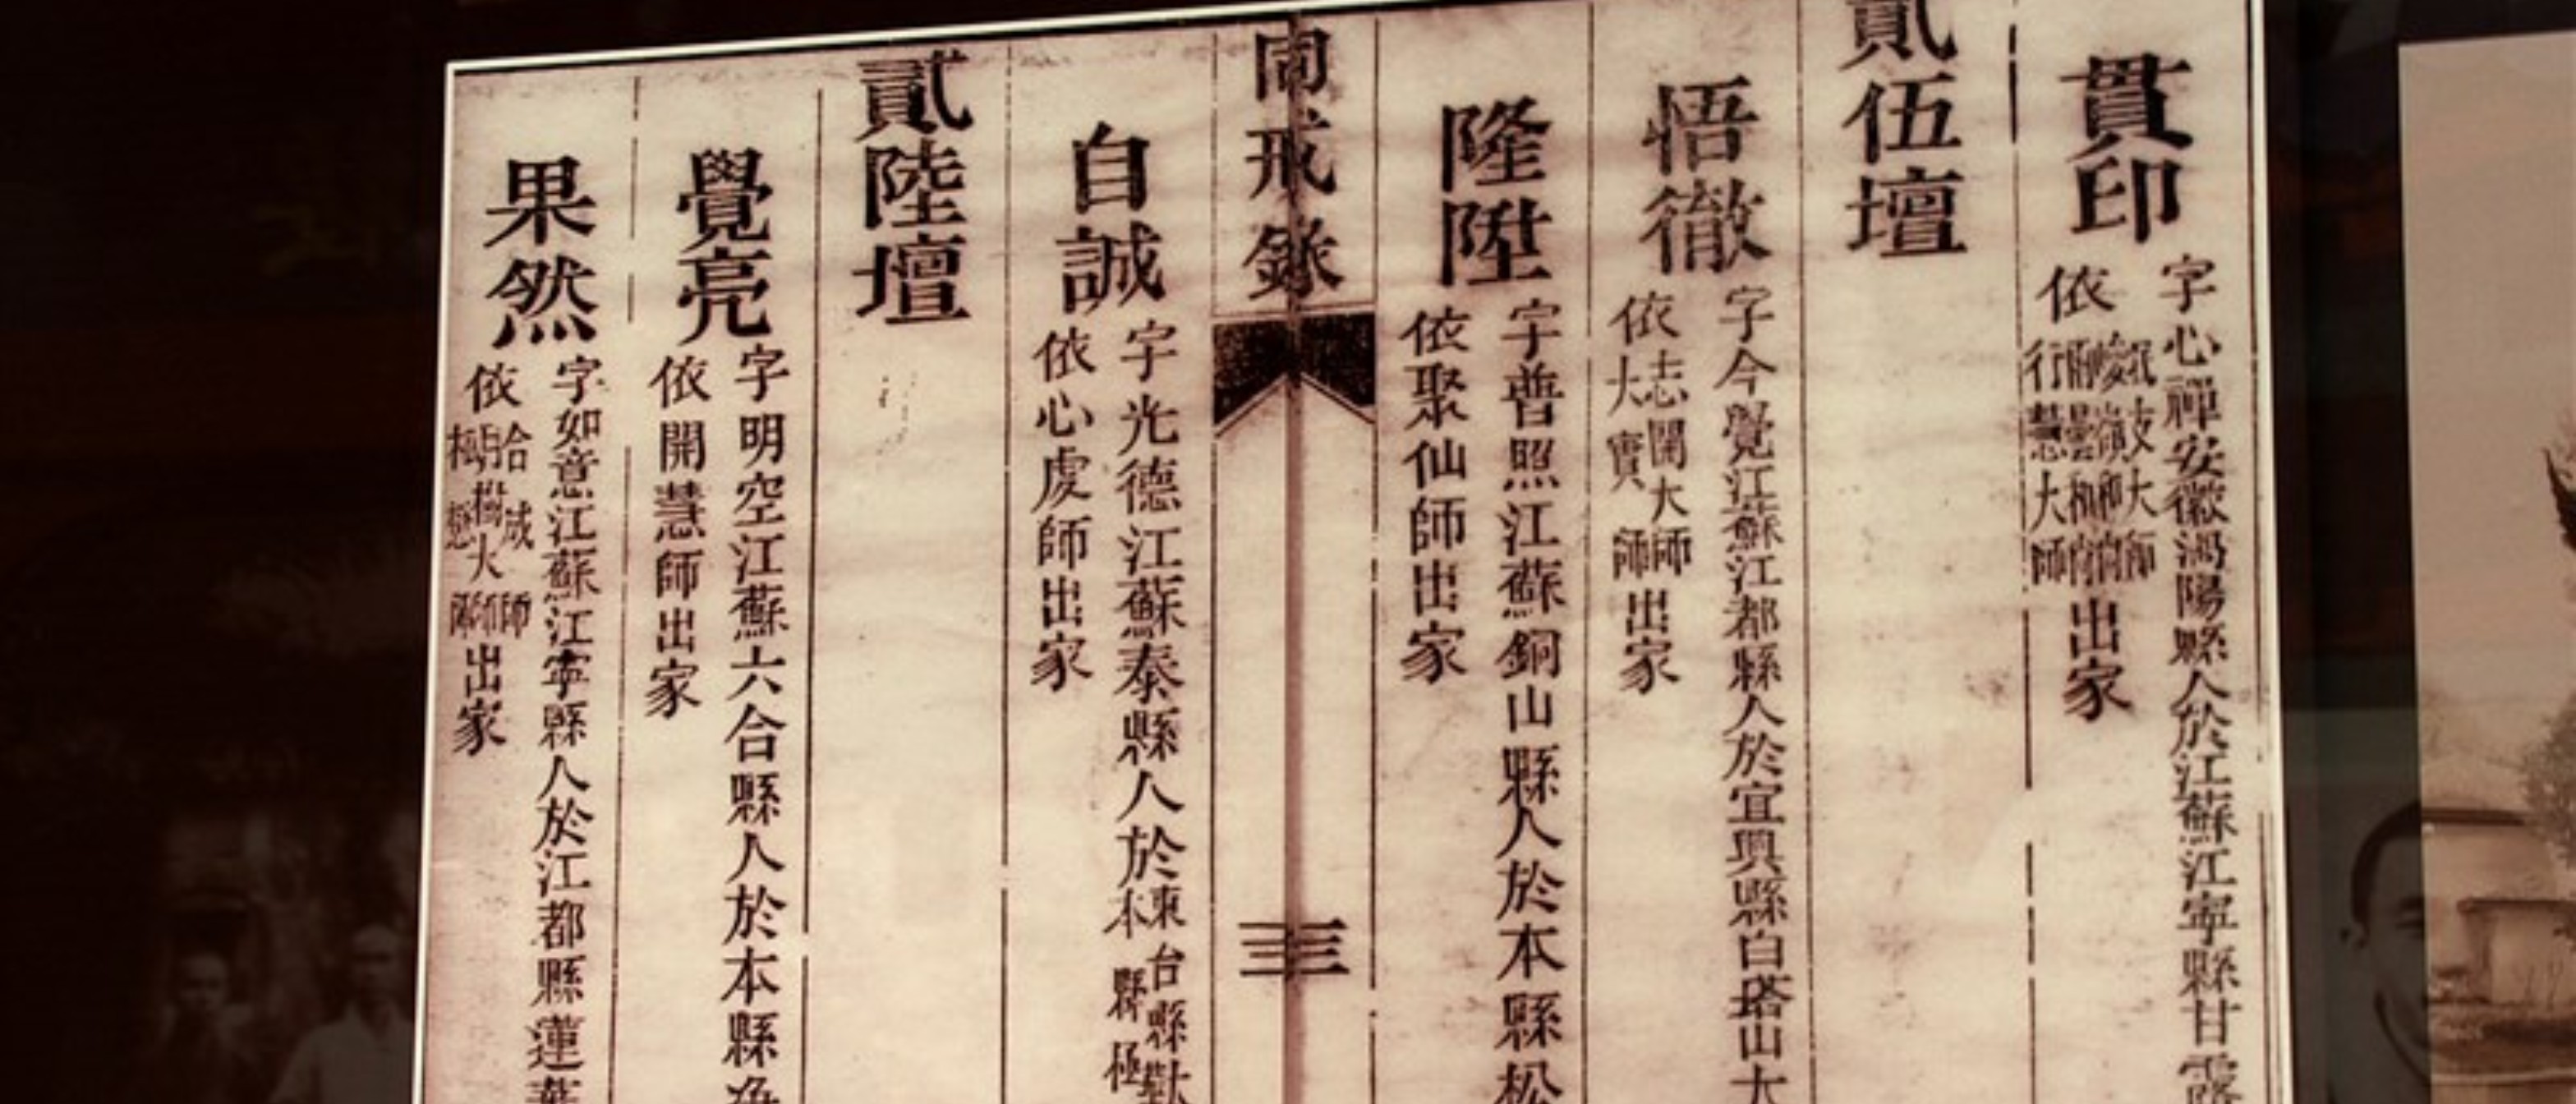 貫印
字心禪安徽渦陽縣人於江蘇江寧縣甘露
依
大師
和尚
和尚
行慧大師
出家
貳伍壇
悟徹
字今覺江蘇江都縣人於宜興縣白塔山大
依
志開大師
大實師
出家
隆陞
字普照江蘇銅山縣人於本縣松
依聚仙師出家
同戒錄
三
自誠
字光德江蘇泰縣人於
東台縣
本縣極
依心虔師出家
貳陸壇
覺亮
字明空江蘇六合縣人於本縣
依開慧師出家
果然
字如意江蘇江寧縣人於江都縣蓮華
依
師
大師
師
出家